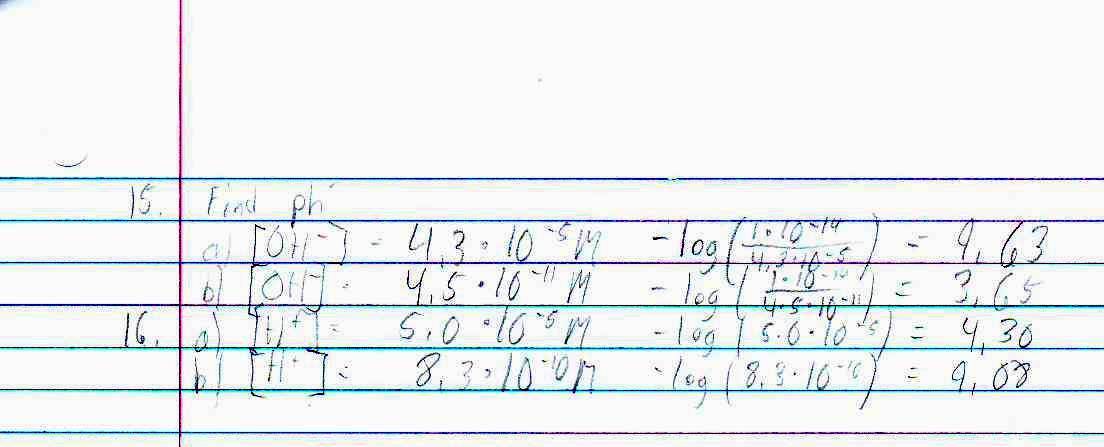 15. Find pH
a) [OH⁻] = 4.3·10⁻⁵ M -log(1·10⁻¹⁴/4.3·10⁻⁵) = 9.63
b) [OH⁻] = 4.5·10⁻¹¹ M -log(1·10⁻¹⁴/4.5·10⁻¹¹) = 3.65
16. a) [H⁺] = 5.0·10⁻⁵ M -log(5.0·10⁻⁵) = 4.30
b) [H⁺] = 8.3·10⁻¹⁰ M -log(8.3·10⁻¹⁰) = 9.08